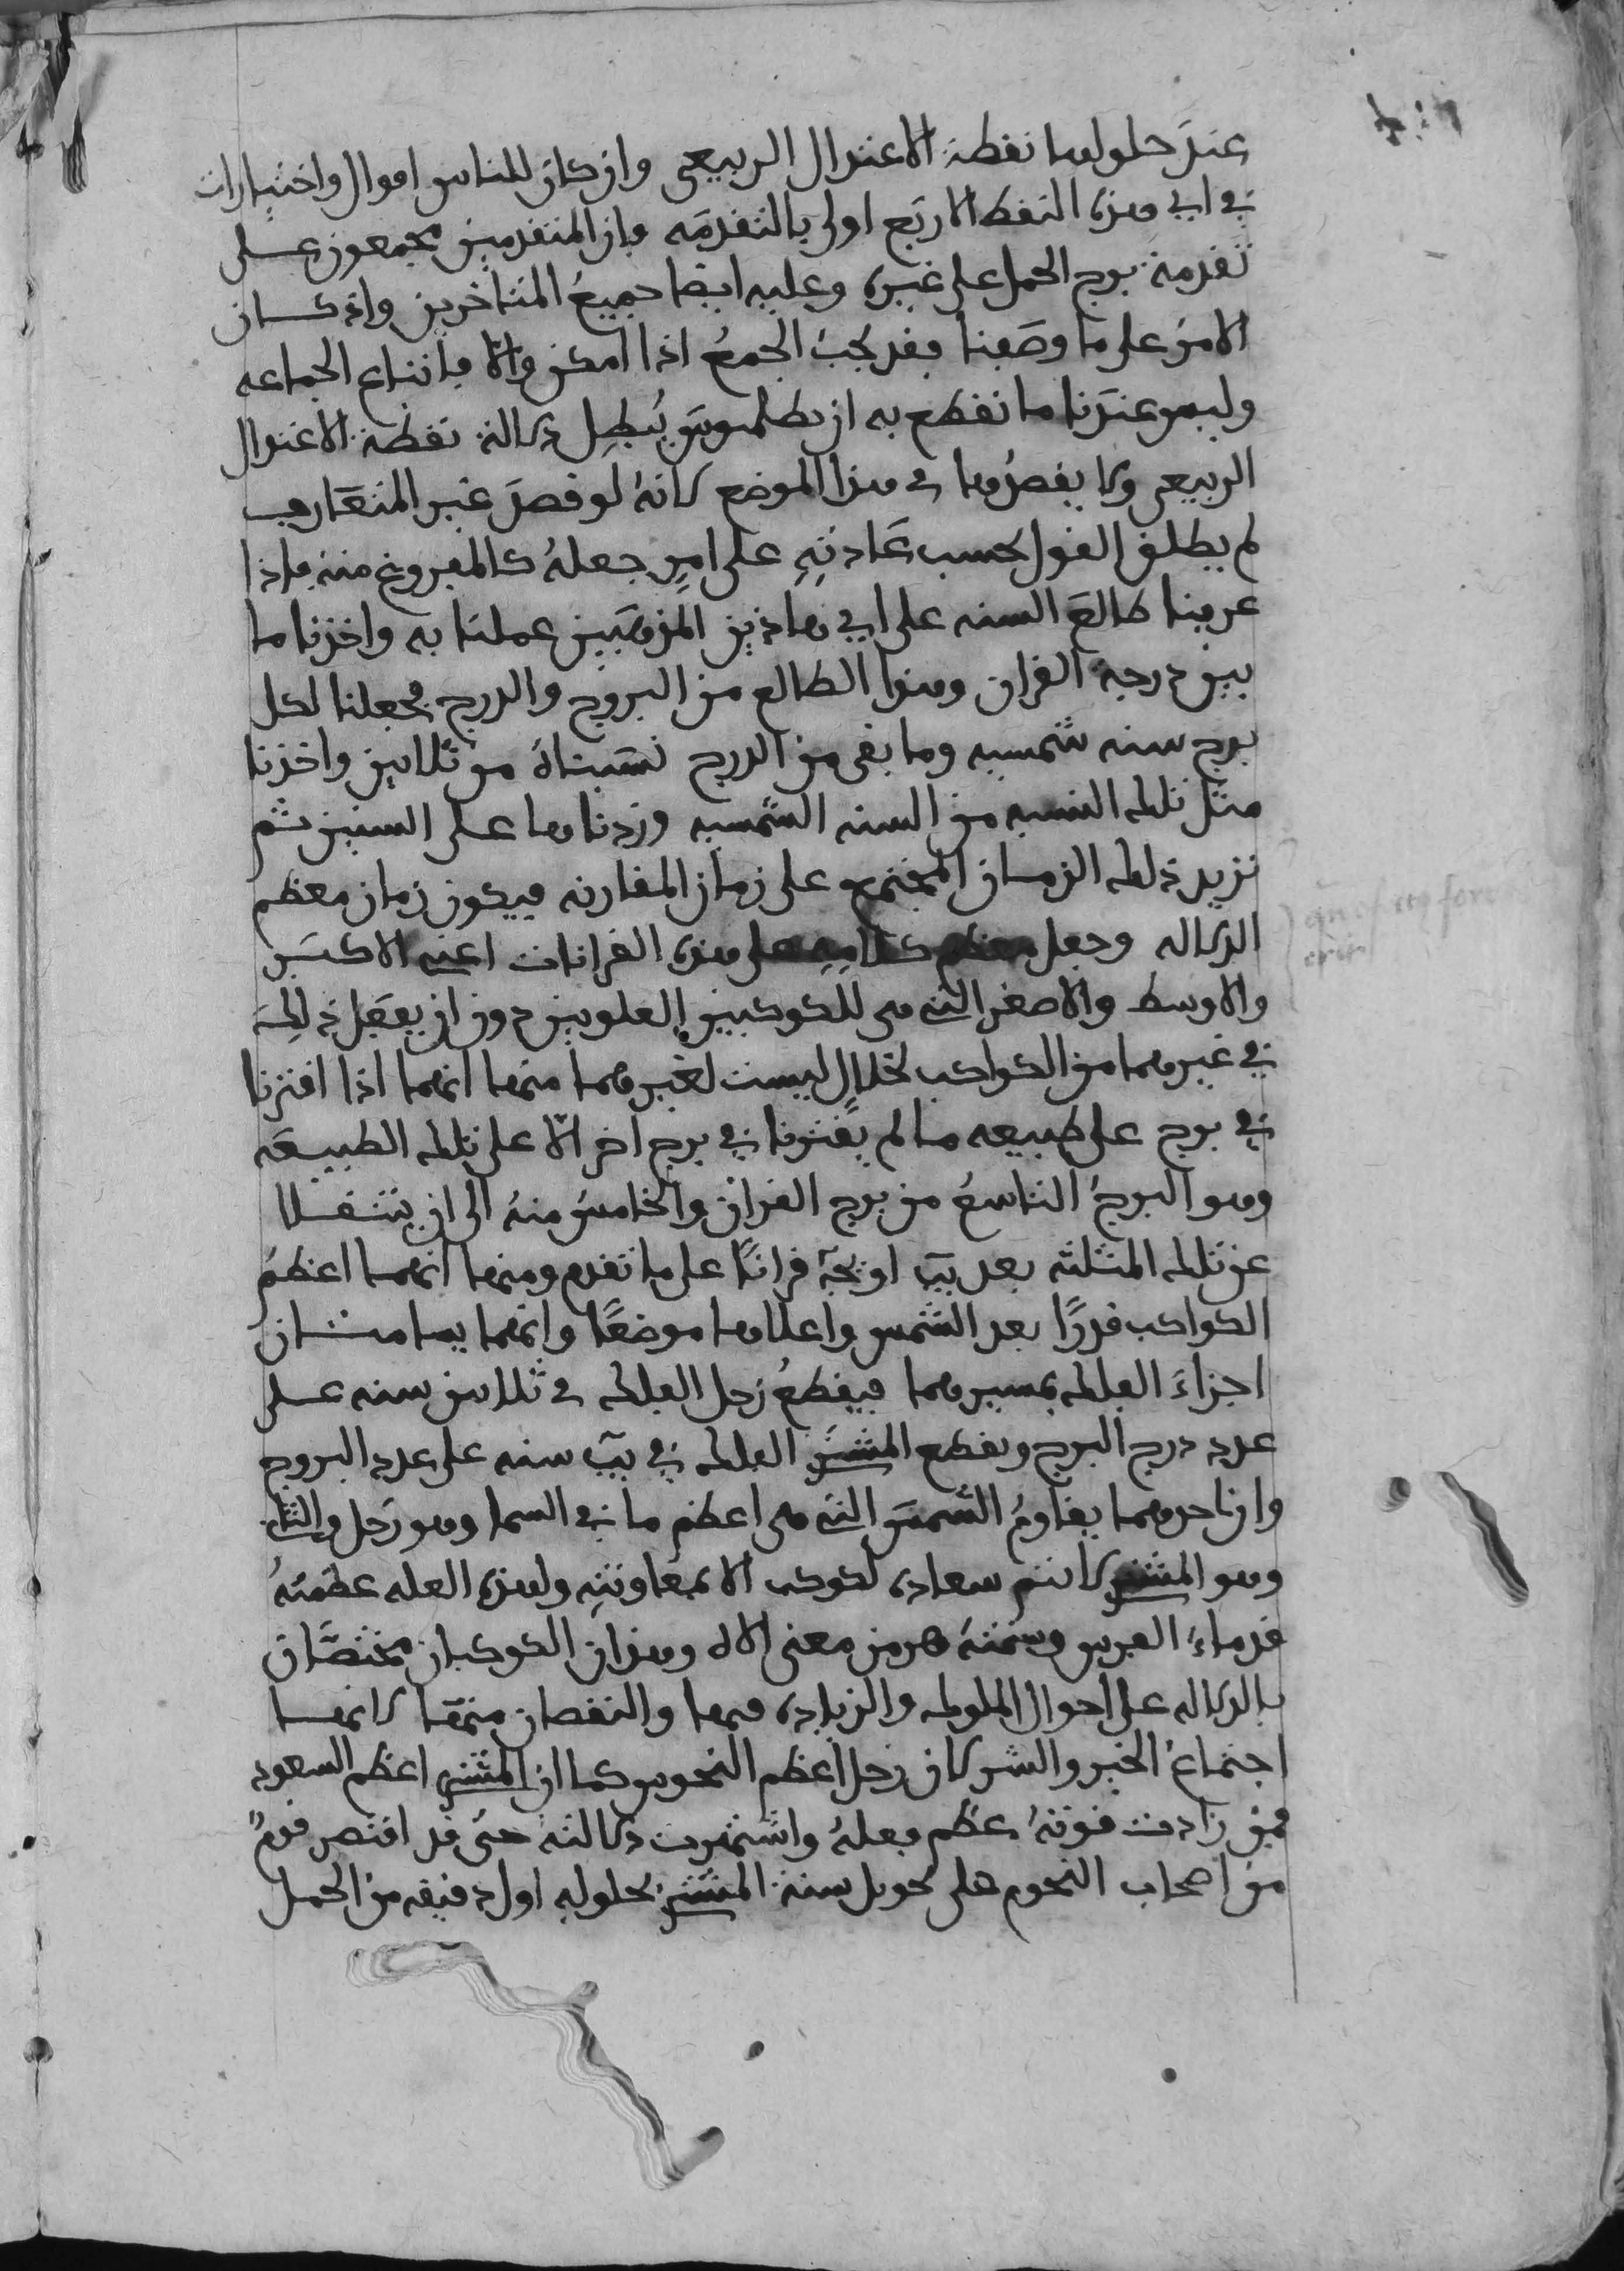 عند حلولها نقطة الاعتدال الربيعى وان كان للناس اقوال واختيارات
فى اى هذه النقط الاربع اولى بالتقدمه فان المتقدمين مجمعون على
تقدمة برج الحمل على غيره وعليه ايضا جميعُ المتاخرين واذ كان
الامرُ على ما وصفنا فقد يجبُ الجمعُ اذا امكن والّا فاتباع الجماعه
وليس عندنا ما نقطع به ان بطلميوس يُبطِل دلالة نقطة الاعتدال
الربيعى ولا يقصدُها فى هذا الموضع لانهُ لو قصدَ غير المتعارف
لم يطلق القول بحسب عَادتِهِ على امرٍ جعلهُ كالمفروغ منه فاذا
عرفنا طالعَ السنه على اى هاذين المذهبَين عملنا به واخذنا ما
بين درجة القران وهذا الطالع من البروج والدرج فجعلنا لكل
برج سنه شمسيه وما بقى من الدرج نسَبناهُ من ثلاثين واخذنا
مثل تلك النسبه من السنه الشمسيه وزدناها على السنين ثم
نزيد ذلك الزمان المجتمع على زمان المقارنه فيكون زمان معظم
الدلاله وجعل معظم كلامِهِ على هذه القرانات اعنى الاكبَر
والاوسط والاصغر التى هى للكوكبين العلويين دون ان يفعَل ذلِكَ
فى غيرهما من الكواكب لخلالٍ ليست لغيرهما منها انهما اذا اقترنا
فى برج على طبيعه ما لم يقترنا فى برج اخر الّا على تلك الطبيعَه
وهو البرجُ التاسعُ من برج القران والخامسُ منهُ الى ان ينتقلا
عن تلك المثلثه بعد يب او يجٓ قرانًا على ما تقدم ومنها انهما اعظمُ
الكواكب قدرًا بعد الشمس واعلاها موضعًا وانهما يسامتان
اجزاءَ الفلك بمسيرهما فيقطعُ زحل الفلك فى ثلاثين سنه على
عدد درج البرج ويقطع المشترى الفلك فى يبٓ سنه على عدد البروج
وان احدهما يقاومُ الشمسَ التى هى اعظم ما فى السما وهو زحل والثانى
وهو المشترى لا تتم سعاده لكوكب الا بمعاونتِهِ ولهذه العله عظمَتهُ
قدماءُ الفرس وسمتهُ هرمز معنى الاله وهذان الكوكبان مختصَّان
بالدلاله على احوال الملوك والزياده فيها والنقصان منها لانهما
اجتماعُ الخير والشر لان زحل اعظم النحوس كما ان المشترى اعظم السعود
فمن زادت قوتهُ عظم فعلهُ واشتهرت دلالتهُ حتى قد اقتصر قومٌ
من اصحاب النجوم على تحويل سنة المشترى بحلوله اول دقيقه من الحمل